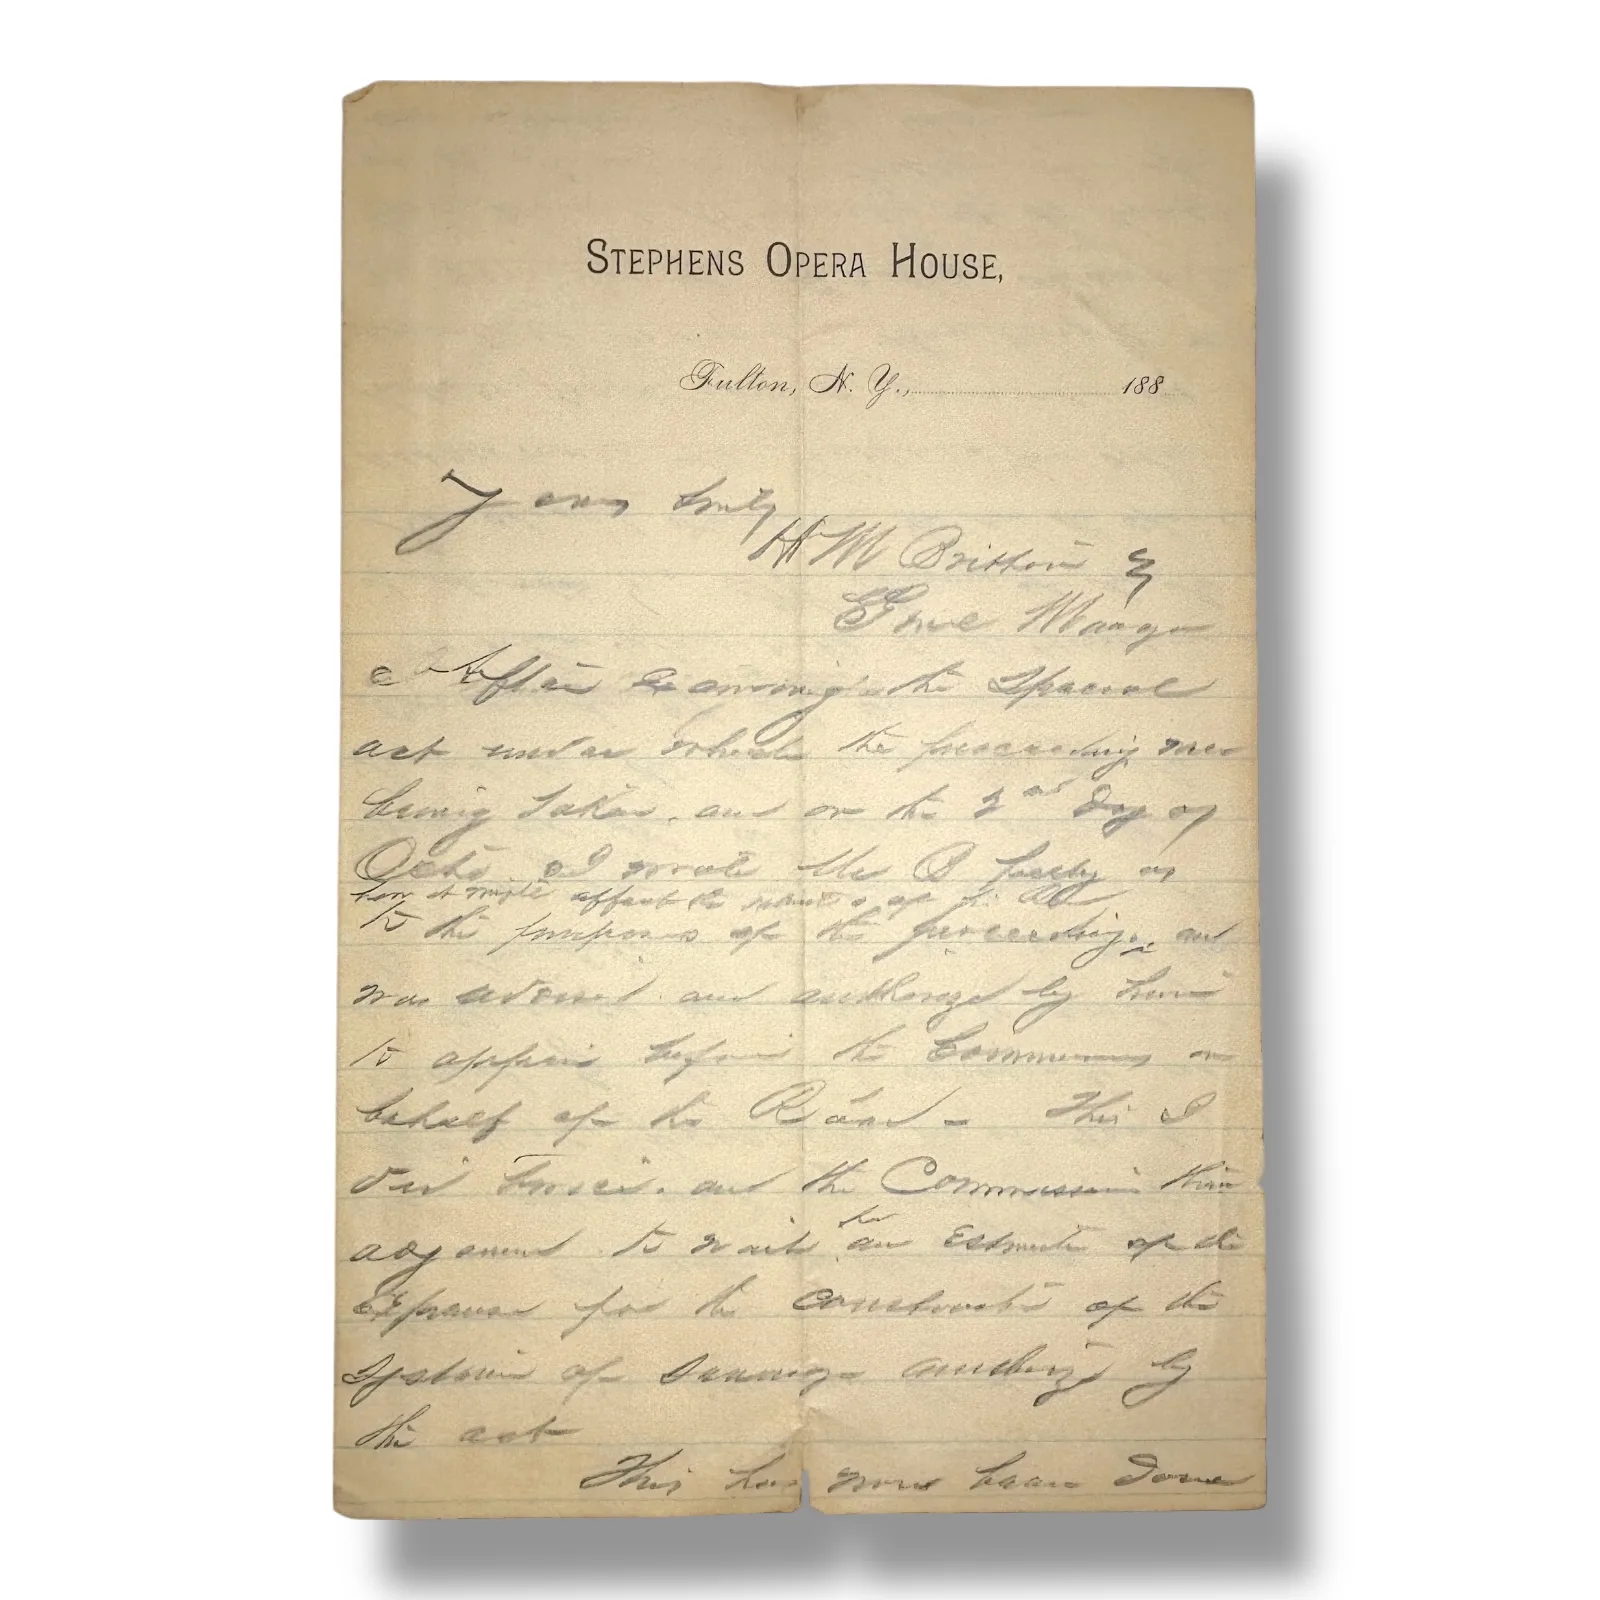 STEPHENS OPERA HOUSE,
Fulton, N. Y., 188
Yours truly
H M Britton
Genl Manager
After Examining the Special
act under which the proceedings were
being taken, and on the 2nd day of
Octo. I wrote Mr B fully as
how it might affect the interests of the Rd
to the purposes of the proceedings, and
was advised and authorized by him
to appear before the Commissioners on
behalf of the Road - This I
did and the Commissioners then
adjourned to wait for an Estimate of the
Expense for the construction of the
System of Sewerage authorized by
the act
This has now been done